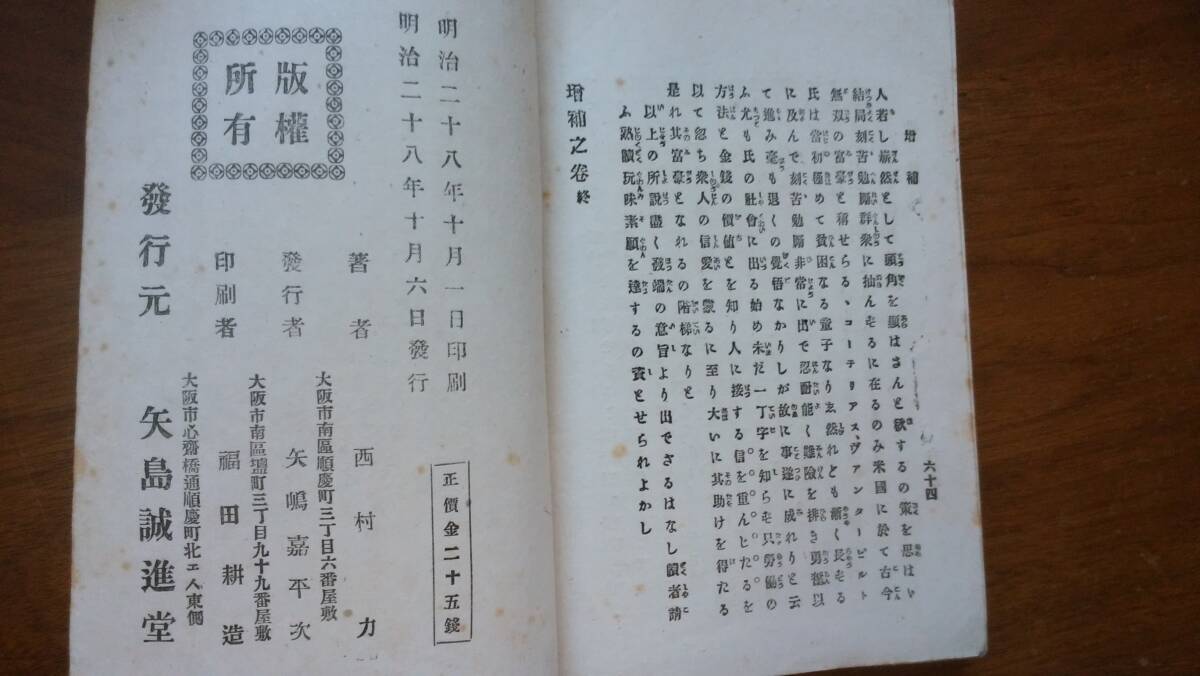 増補
六十四
人若し嶄然として頭角を顯はさんと欲するの策を思はゞ
結局刻苦勉勵群衆に抽んずるに在るのみ米國に於て古今
無双の富豪と稱せらるゝコーチリアス、ヴァンタービルト
氏は當初極めて貧困なる童子なりき然れども漸く長ずる
に及んで刻苦勉勵非常に出で忍耐能く難險を排き勇奮以
て進み毫も退くの覺悟なかりしが故に事遂に成れりと云
ふ尤も氏の社會に出る始め未だ一丁字を知らず只勞働の
方法と金錢の價値とを知り人に接する信を重んじたるを
以て忽ち衆人の信愛を蒙るに至り大いに其助けを得たる
是れ其富豪となれるの階梯なりと
以上の所說盡く發端の意旨より出でざるはなし讀者請
ふ熟讀玩味素願を達するの資とせられよかし
増補之卷終
明治二十八年十月一日印刷
明治二十八年十月六日發行
正價金二十五錢
著者 西村力
大阪市南區順慶町三丁目六番屋敷
發行者 矢嶋嘉平次
大阪市南區壚町三丁目九十九番屋敷
印刷者 福田耕造
大阪市心齋橋通順慶町北エ入東側
發行元 矢島誠進堂
版權
所有